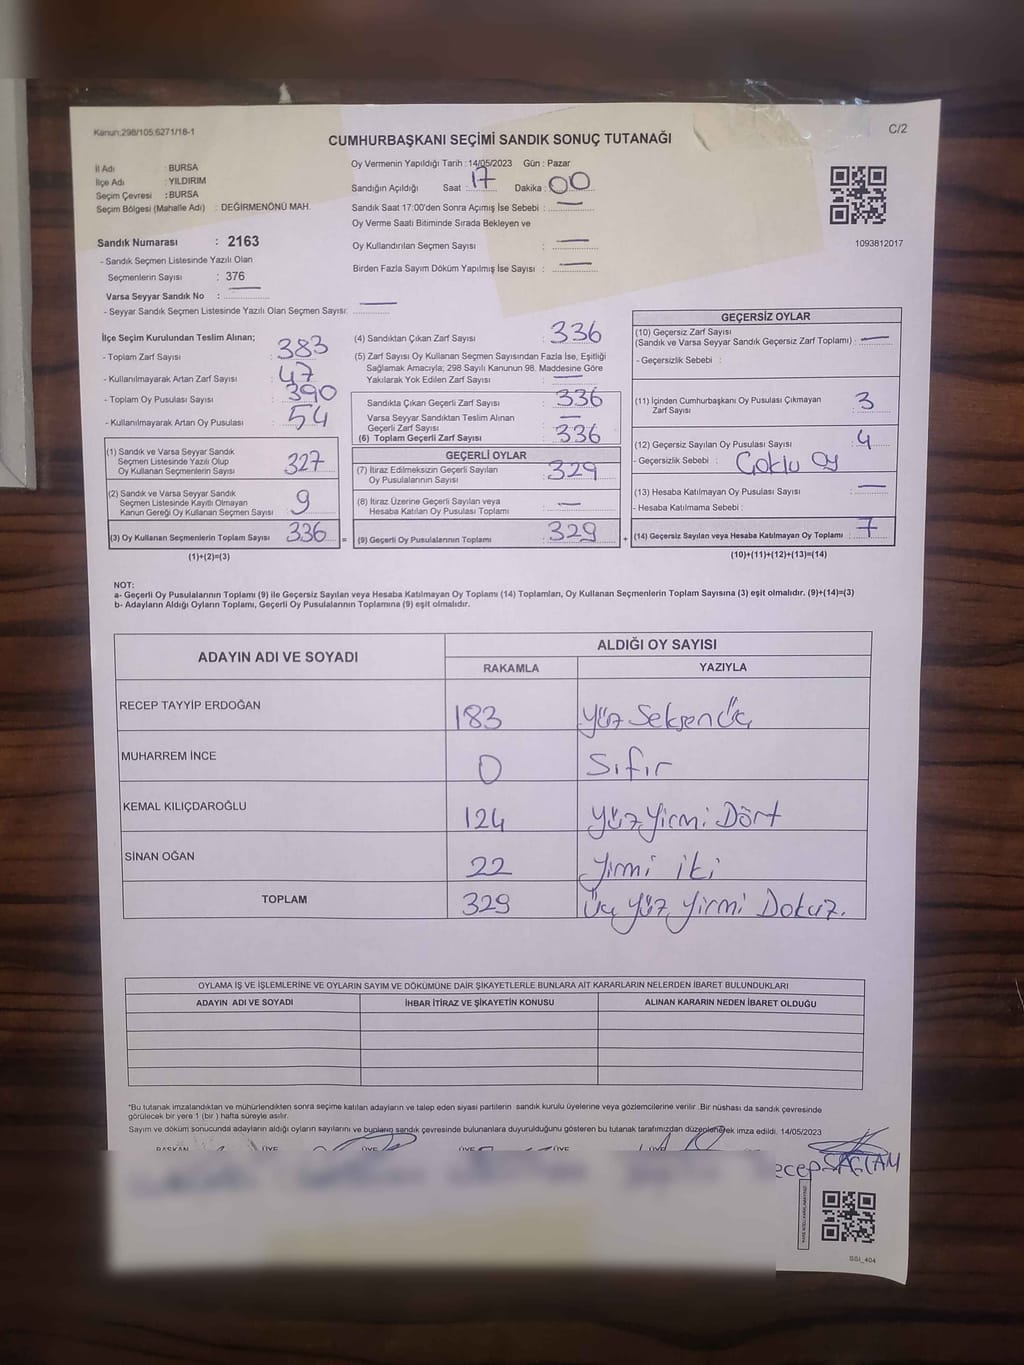 Kanun:298/105,6271/18-1
C/2
CUMHURBAŞKANI SEÇİMİ SANDIK SONUÇ TUTANAĞI
İl Adı : BURSA
İlçe Adı : YILDIRIM
Seçim Çevresi : BURSA
Seçim Bölgesi (Mahalle Adı) : DEĞİRMENÖNÜ MAH.
Oy Vermenin Yapıldığı Tarih : 14/05/2023 Gün : Pazar
Sandığın Açıldığı Saat : 17 Dakika : 00
Sandık Saat 17:00'den Sonra Açımış İse Sebebi : —
Oy Verme Saati Bitiminde Sırada Bekleyen ve
Oy Kullandırılan Seçmen Sayısı : —
Birden Fazla Sayım Döküm Yapılmış İse Sayısı : —
1093812017
Sandık Numarası : 2163
- Sandık Seçmen Listesinde Yazılı Olan
Seçmenlerin Sayısı : 376
Varsa Seyyar Sandık No : —
- Seyyar Sandık Seçmen Listesinde Yazılı Olan Seçmen Sayısı: —
İlçe Seçim Kurulundan Teslim Alınan;
- Toplam Zarf Sayısı : 383
- Kullanılmayarak Artan Zarf Sayısı : 47
- Toplam Oy Pusulası Sayısı : 390
- Kullanılmayarak Artan Oy Pusulası : 54
(1) Sandık ve Varsa Seyyar Sandık
Seçmen Listesinde Yazılı Olup
Oy Kullanan Seçmenlerin Sayısı 327
(2) Sandık ve Varsa Seyyar Sandık
Seçmen Listesinde Kayıtlı Olmayan
Kanun Gereği Oy Kullanan Seçmen Sayısı 9
(3) Oy Kullanan Seçmenlerin Toplam Sayısı 336 =
(1)+(2)=(3)
(4) Sandıktan Çıkan Zarf Sayısı : 336
(5) Zarf Sayısı Oy Kullanan Seçmen Sayısından Fazla İse, Eşitliği
Sağlamak Amacıyla; 298 Sayılı Kanunun 98. Maddesine Göre
Yakılarak Yok Edilen Zarf Sayısı : —
Sandıkla Çıkan Geçerli Zarf Sayısı : 336
Varsa Seyyar Sandıktan Teslim Alınan
Geçerli Zarf Sayısı : —
(6) Toplam Geçerli Zarf Sayısı : 336
GEÇERLİ OYLAR
(7) İtiraz Edilmeksizin Geçerli Sayılan
Oy Pusulasının Sayısı : 329
(8) İtiraz Üzerine Geçerli Sayılan veya
Hesaba Katılan Oy Pusulası Toplamı : —
(9) Geçerli Oy Pusulalarının Toplamı : 329 +
GEÇERSİZ OYLAR
(10) Geçersiz Zarf Sayısı
(Sandık ve Varsa Seyyar Sandık Geçersiz Zarf Toplamı) : —
- Geçersizlik Sebebi :
(11) İçinden Cumhurbaşkanı Oy Pusulası Çıkmayan
Zarf Sayısı : 3
(12) Geçersiz Sayılan Oy Pusulası Sayısı : 4
- Geçersizlik Sebebi : Çoklu oy
(13) Hesaba Katılmayan Oy Pusulası Sayısı : —
- Hesaba Katılmama Sebebi :
(14) Geçersiz Sayılan veya Hesaba Katılmayan Oy Toplamı : 7
(10)+(11)+(12)+(13)=(14)
NOT:
a- Geçerli Oy Pusulalarının Toplamı (9) ile Geçersiz Sayılan veya Hesaba Katılmayan Oy Toplamı (14) Toplamları, Oy Kullanan Seçmenlerin Toplam Sayısına (3) eşit olmalıdır. (9)+(14)=(3)
b- Adayların Aldığı Oyların Toplamı, Geçerli Oy Pusulalarının Toplamına (9) eşit olmalıdır.
ADAYIN ADI VE SOYADI ALDIĞI OY SAYISI
RAKAMLA YAZIYLA
RECEP TAYYİP ERDOĞAN 183 Yüz Seksen Üç
MUHARREM İNCE 0 Sıfır
KEMAL KILIÇDAROĞLU 124 Yüz Yirmi Dört
SİNAN OĞAN 22 Yirmi iki
TOPLAM 329 Üç Yüz Yirmi Dokuz.
OYLAMA İŞ VE İŞLEMLERİNE VE OYLARIN SAYIM VE DÖKÜMÜNE DAİR ŞİKAYETLERLE BUNLARA AİT KARARLARIN NELERDEN İBARET BULUNDUKLARI
ADAYIN ADI VE SOYADI İHBAR İTİRAZ VE ŞİKAYETİN KONUSU ALINAN KARARIN NEDEN İBARET OLDUĞU
*Bu tutanak imzalandıktan ve mühürlendikten sonra seçime katılan adayların ve talep eden siyasi partilerin sandık kurulu üyelerine veya gözlemcilerine verilir. Bir nüshası da sandık çevresinde
görülecek bir yere 1 (bir) hafta süreyle asılır.
Sayım ve döküm sonucunda adayların aldığı oyların sayılarını ve bunların sandık çevresinde bulunanlara duyurulduğunu gösteren bu tutanak tarafımızdan düzenlenerek imza edildi. 14/05/2023
BAŞKAN ÜYE ÜYE ÜYE ÜYE
ecep SAĞLAM
SSI_404